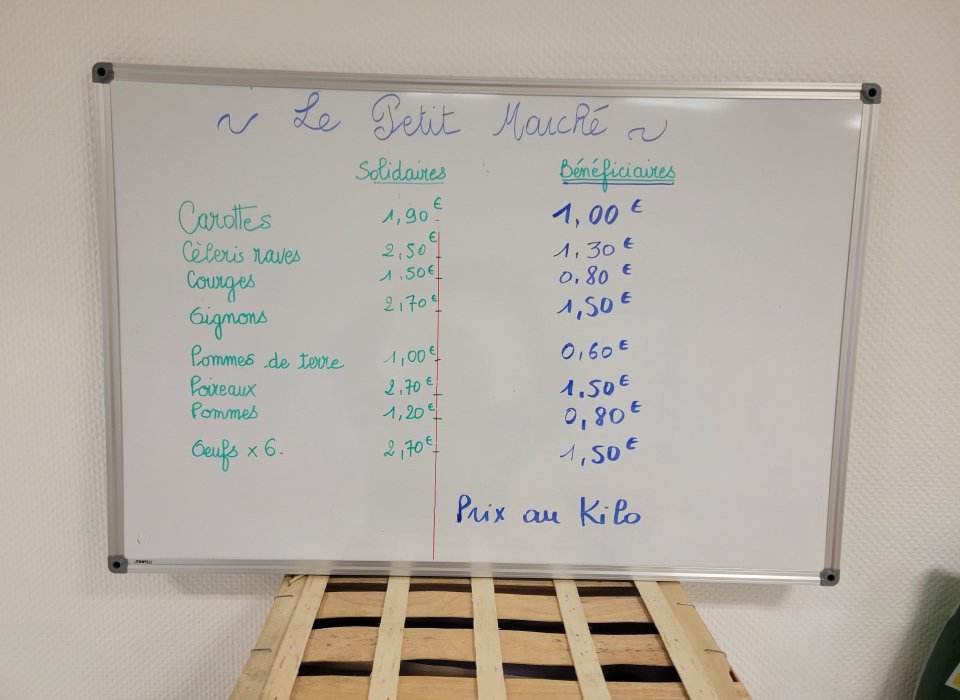 ~ Le Petit Marché ~
Solidaires Bénéficiaires
Carottes 1,90€ 1,00€
Cèleris raves 2,50€ 1,30€
Courges 1.50€ 0,80€
Oignons 2,70€ 1,50€
Pommes de terre 1,00€ 0,60€
Poireaux 2,70€ 1,50€
Pommes 1,20€ 0,80€
Oeufs x 6. 2,70€ 1,50€
Prix au Kilo